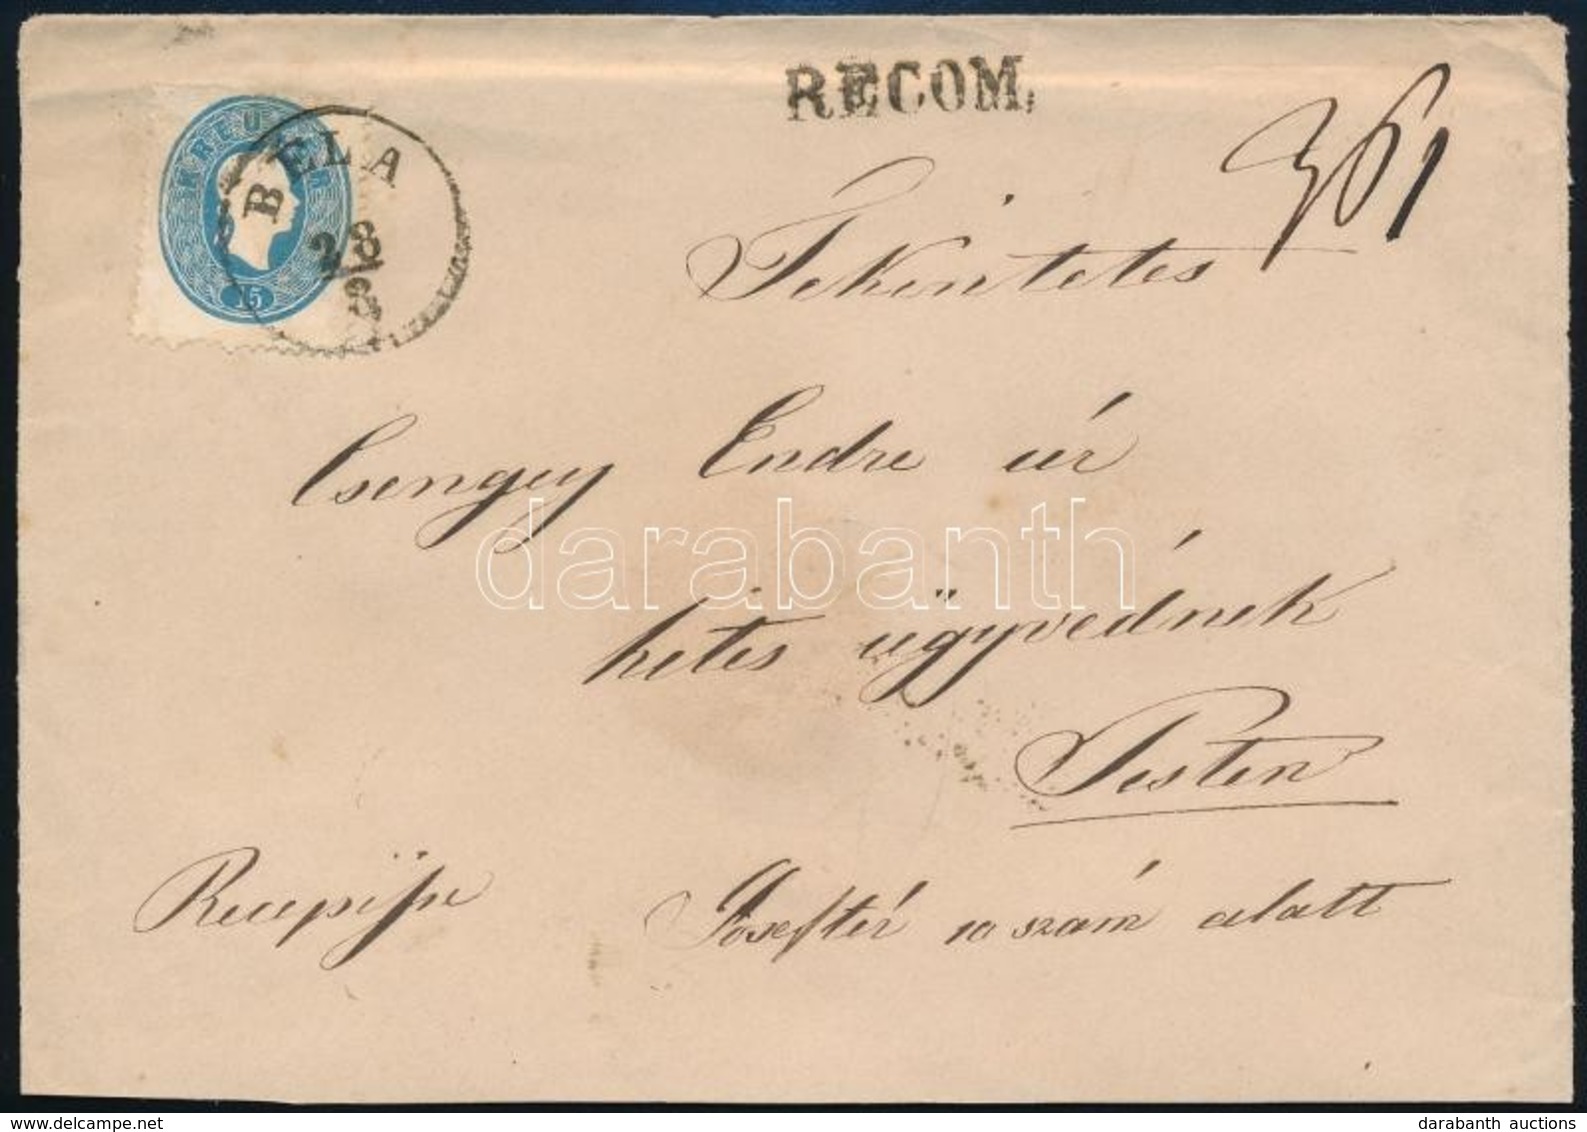 RECOM.
361
KREUZER
15
BELA
28/8
Tekintetes
Csengey Endre úr
hites ügyvédnek
Pesten
Recepisse
Joseftér 10 szám alatt
darabanth
delcampe.net
darabanth auctions